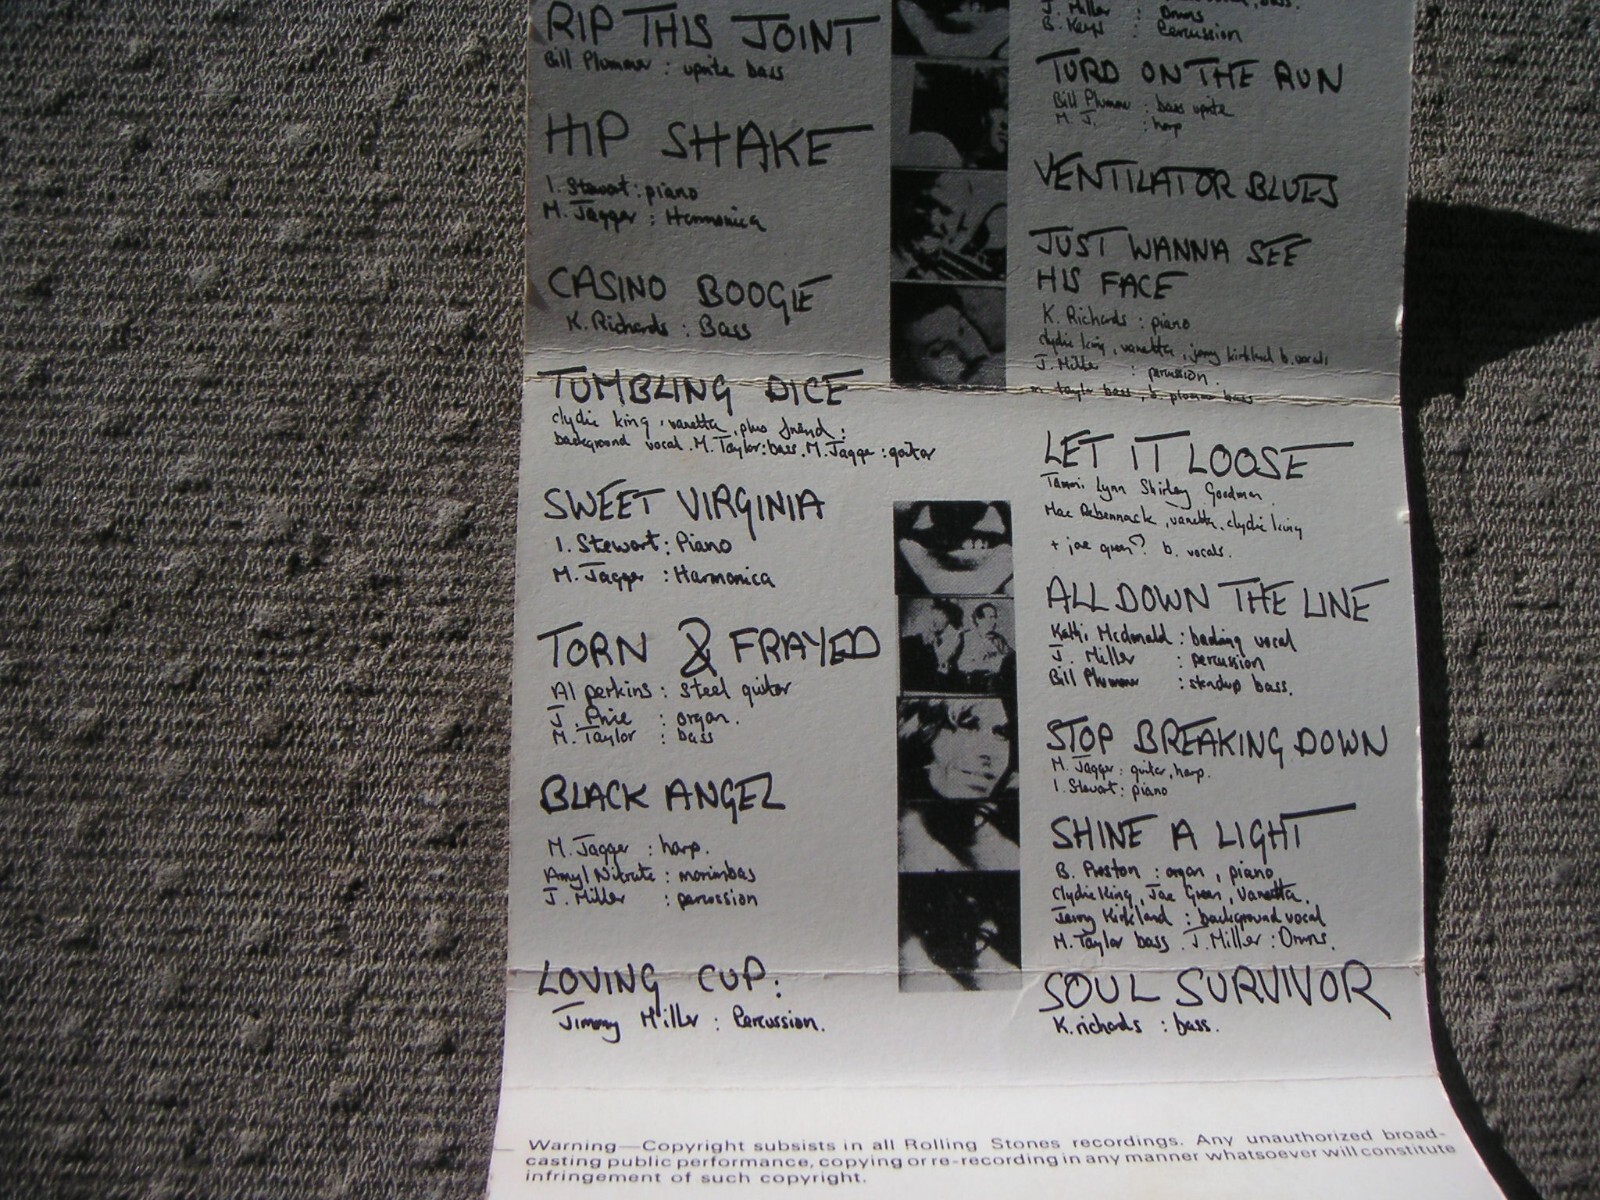 RIP THIS JOINT
Bill Plummer : uprite bass
HIP SHAKE
I. Stewart : piano
M. Jagger : Harmonica
CASINO BOOGIE
K. Richards : Bass
TUMBLING DICE
clydie king, vanetta, plus friend :
background vocal. M. Taylor : bass. M. Jagger : guitar
SWEET VIRGINIA
I. Stewart : Piano
M. Jagger : Harmonica
TORN & FRAYED
Al perkins : steel guitar
J. Price : organ.
M. Taylor : bass
BLACK ANGEL
M. Jagger : harp.
Amyl Nitrate : marimbas
J. Miller : percussion
LOVING CUP :
Jimmy Miller : Percussion.
J. Miller : Drums
B. Keys : Percussion
TURD ON THE RUN
Bill Plummer : bass uprite
M. J. : harp
VENTILATOR BLUES
JUST WANNA SEE
HIS FACE
K. Richards : piano
clydie king, vanetta, jerry kirkland b. vocals
J. Miller : percussion.
m. taylor bass, b. plummer bass
LET IT LOOSE
Tammi Lynn Shirley Goodman
Mac Rebennack, vanetta, clydie king
+ joe green? b. vocals.
ALL DOWN THE LINE
Kathi Mcdonald : backing vocal
J. Miller : percussion
Bill Plummer : standup bass.
STOP BREAKING DOWN
M. Jagger : guitar, harp.
I. Stewart : piano
SHINE A LIGHT
B. Preston : organ, piano
Clydie King, Joe Green, Vanetta,
Jerry Kirkland : background vocal
M. Taylor bass. J. Miller : Drums.
SOUL SURVIVOR
K. richards : bass.
Warning—Copyright subsists in all Rolling Stones recordings. Any unauthorized broad-
casting public performance, copying or re-recording in any manner whatsoever will constitute
infringement of such copyright.